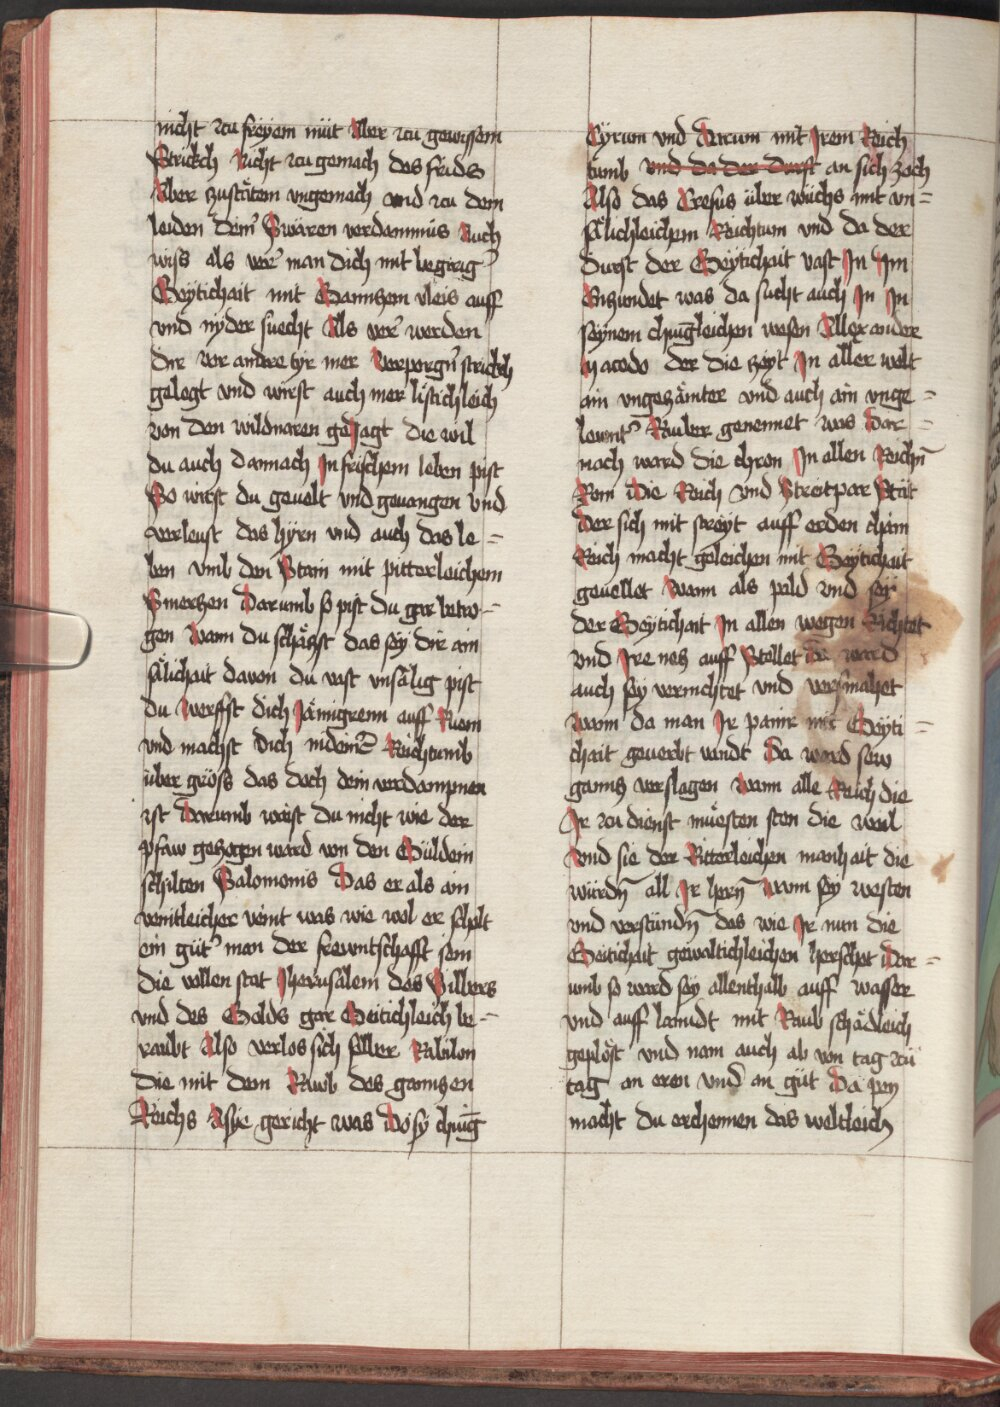 nicht zu freyem müt Aber zu gewissem
Strickch Nicht zu gemach des frids
Aber zustätem vngemach vnd zu dem
leiden dem̃ Swären verdammnüs Auch
wiss als ver̃ man dich mit begirig̃
Geytichait mit Ganczem vleis auff
vnd nyder suecht Als ver̃ werden
dir vor andre tyr mer Verporgn̄ strickch
gelegt vnd wirst auch mer listichleich
von den wildnaren geJagt die wil
du auch darnach Jn frischem leben pist
So wirst du geuelt vnd geuangen vnd
verleust das hyrn vnd auch das le=
ben vmb den Stain mit pitterleichem
Smerczen Darumb so pist du gar betro=
gen Wann du schäczst das sey dir ain
sälichait dauon du vast vnsälig pist
Du Werffst dich Jämigrenn auff Ruem
vnd machst dich Reichtumb
über gröss das doch dein verdampnen
ist Darumb waist du nicht wie der
pfaw geczogen ward von den Güldein
schilten Salomonis Das er als ain
veintleicher veint was wie wol er scholt
ein güt̃ man der frewntschafft sein
die vollen stat Jherusalem des Silbers
vnd des Golds gar Geitichleich be=
raubt Also verlos sich selber Babilon
die mit dem Rawb des ganczen
Reichs Asye gericht was Do sy chung̃
Cyrum vnd Darium mit Jrem Reich
tumb vnd da der Durst an sich zoch
Also das Cresus über wüchs mit vn=
sälichleichem Reichtum vnd da der
durst der Geytichait vast Jn Jm
Enczundet was da sucht auch Jn Jn
seynem chung̃leichen wesen Allexander
Macedo der die zeyt Jn aller welt
ain vngezämter vnd auch ain vnge=
lewnt̃ Rauber genennet was Dar=
nach ward die chron Jn allen Reichn̄
Rom Die Reich vnd Streitpar Stat
Der sich mit streyt auff erden chain
Reich macht geleichen mit Geytichait
geuellet Wann als pald vnd sey
der Geytichait Jn allen wegen Richtet
vnd Jre nes auff Stellet Da ward
auch sy vernichtet vnd versmahet
Wann da man Jr panir mit Geyti=
chait geuerbt vandt Da ward sew
gancz verslagen Wann alle Reich die
Jr zu dienst müesten sten die weil
Vnd sie der Ritterleichen manhait die
würdn̄ all Jr hern̄ Wann sy westen
vnd verstündn̄ das wie Jr nun die
Geitichait gewaltichleichen herschet Dar=
umb so ward sey allenthalb auff wasser
vnd auff lanndt mit Raub schädleich
geplöst vnd nam auch ab von tag zu
tag an eren vnd an güt Da pey
macht du erchennen das weltleich